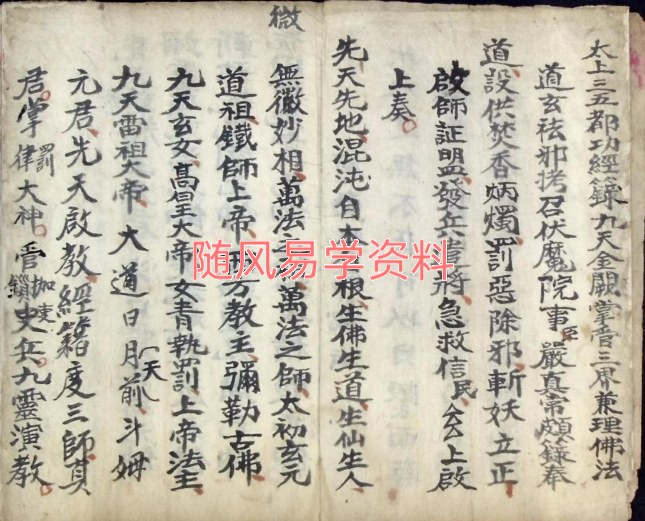 太上三五都功經籙九天金闕掌晋三界兼理佛法
道玄祛邪拷召伏魔院事臣嚴真常頗籙奉
道設供焚香炳燭罰惡除邪斬妖立正
啟師証盟發兵 將急救信民 上啟
上奏
先天先地混沌自本之根生佛生道生仙生人
微
無徽妙相萬法之 萬法之師太初玄元
道祖鐵師上帝 方教主彌勒古佛
九天玄女高皇大帝女青執罰上帝法主
九天雷祖大帝大道日月前天斗姆
元君先天啟教經籍度三師真
君掌罰律大神管枷 鎖吏兵九靈演教
随风易学资料